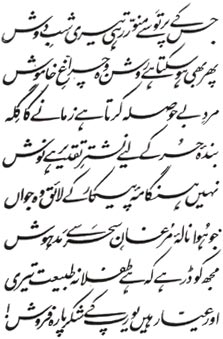 جس کے پرتو سے منور رہی تیری شبِ دوش
پھر بھی ہو سکتا ہے روشن وہ چراغِ خاموش
مردِ بے حوصلہ کرتا ہے زمانے کا گلہ
بندۂ حُر کے لیے نشترِ تقدیر ہے نوش
نہیں ہنگامۂ پیکار کے لائق وہ جواں
جو ہوا نالۂ مرغانِ سحر سے مدہوش
مجھ کو ڈر ہے کہ ہے طفلانہ طبیعت تیری
اور عیار ہیں یورپ کے شکر پارہ فروش!